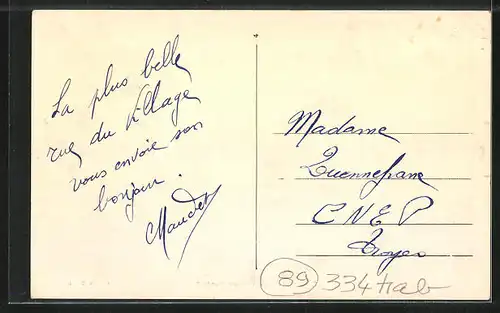 La plus belle
rue du village
vous envoie son
bonjour.
Maudet
Madame
Quennehane
CNEP
Troyes
89 334 trab